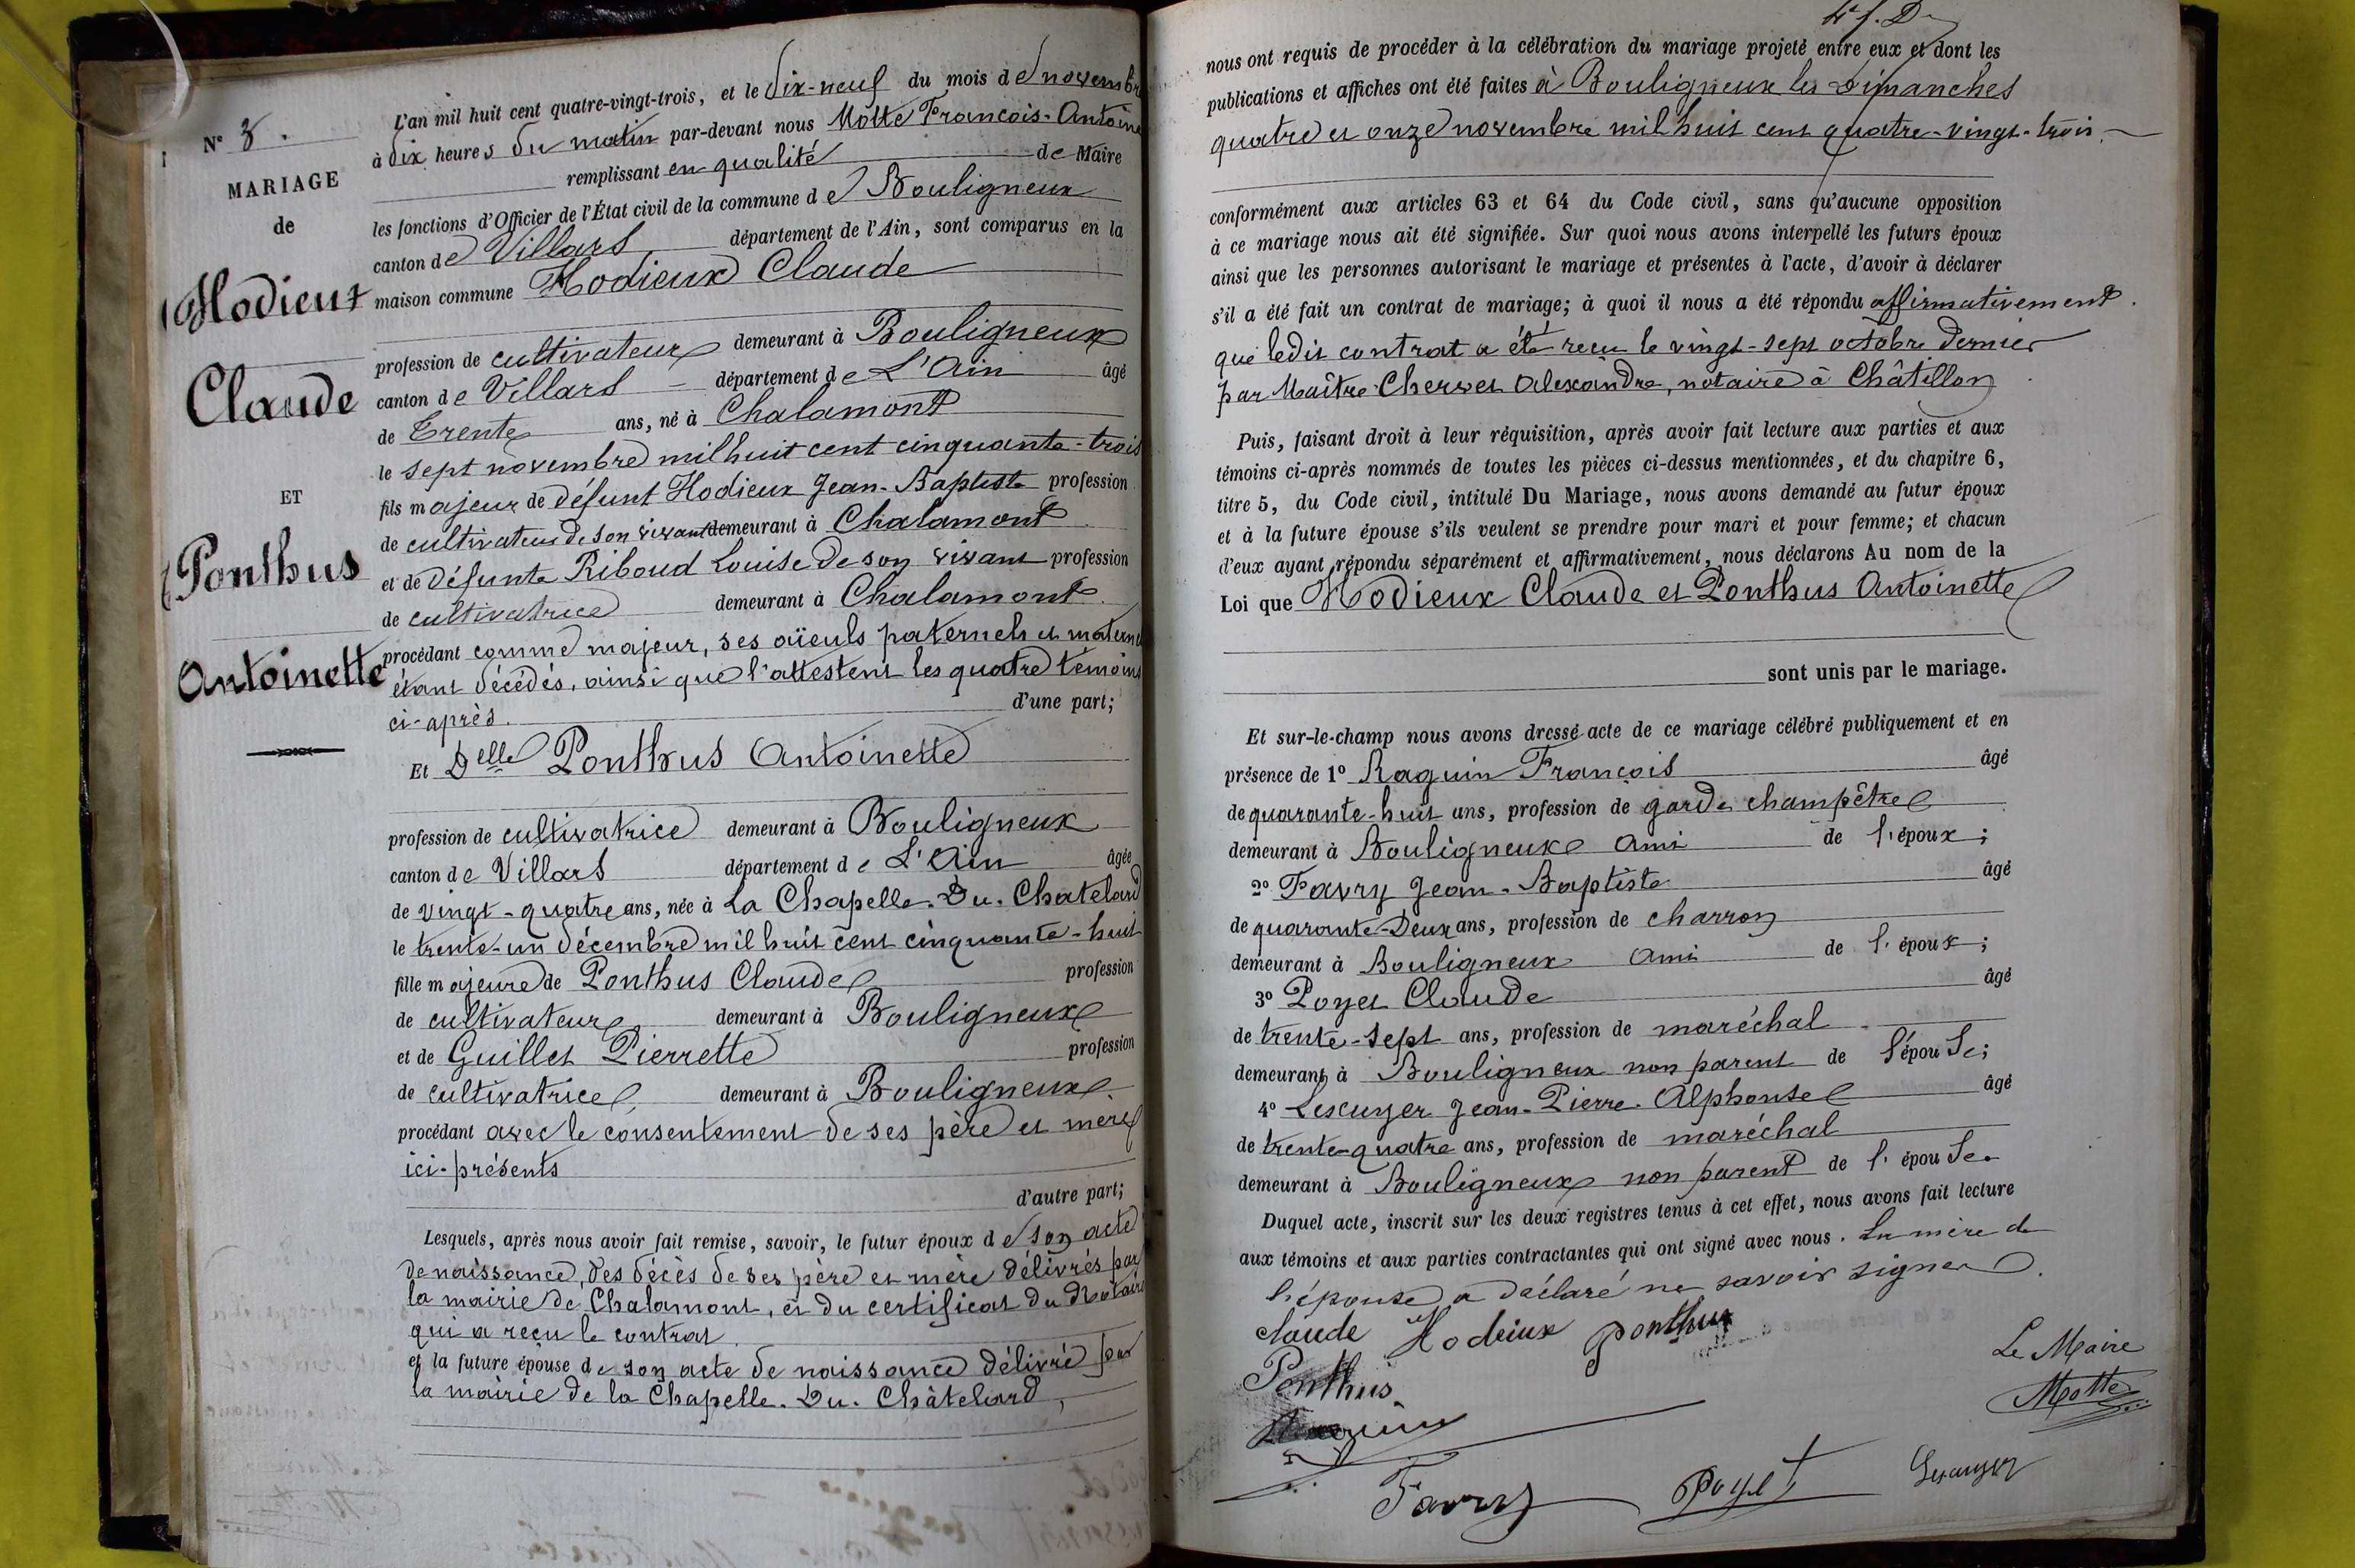 N° 3.
MARIAGE
de
Hodieux
Claude
ET
Ponthus
Antoinette
L'an mil huit cent quatre-vingt-trois, et le dix-neuf du mois de novembre
à dix heures du matin par-devant nous Motte François-Antoine
remplissant en qualité de Maire
les fonctions d'Officier de l'État civil de la commune de Bouligneux
canton de Villars département de l'Ain, sont comparus en la
maison commune Hodieux Claude
profession de cultivateur demeurant à Bouligneux
canton de Villars département de L'Ain âgé
de Trente ans, né à Chalamont
le sept novembre mil huit cent cinquante-trois
fils majeur de défunt Hodieux Jean-Baptiste profession
de cultivateur de son vivant demeurant à Chalamont
et de défunte Riboud Louise de son vivant profession
de cultivatrice demeurant à Chalamont
procédant comme majeur, ses aïeuls paternels et maternels
étant décédés, ainsi que l'attestent les quatre témoins
ci-après. d'une part;
Et Delle Ponthus Antoinette
profession de cultivatrice demeurant à Bouligneux
canton de Villars département de L'Ain âgée
de vingt-quatre ans, née à La Chapelle-Du-Chatelard
le trente-un décembre mil huit cent cinquante-huit
fille majeure de Ponthus Claude profession
de cultivateur demeurant à Bouligneux
et de Guillet Pierrette profession
de cultivatrice demeurant à Bouligneux
procédant avec le consentement de ses père et mère
ici-présents
d'autre part;
Lesquels, après nous avoir fait remise, savoir, le futur époux de son acte
de naissance, des décès de ses père et mère délivrés par
la mairie de Chalamont, et du certificat du Notaire
qui a reçu le contrat
et la future épouse de son acte de naissance délivré par
la mairie de la Chapelle-Du-Châtelard,
nous ont requis de procéder à la célébration du mariage projeté entre eux et dont les
publications et affiches ont été faites à Bouligneux les Dimanches
quatre et onze novembre mil huit cent quatre-vingt-trois
conformément aux articles 63 et 64 du Code civil, sans qu'aucune opposition
à ce mariage nous ait été signifiée. Sur quoi nous avons interpellé les futurs époux
ainsi que les personnes autorisant le mariage et présentes à l'acte, d'avoir à déclarer
s'il a été fait un contrat de mariage; à quoi il nous a été répondu affirmativement.
que ledit contrat a été reçu le vingt-sept octobre dernier
par Maître Chervet Alexandre, notaire à Châtillon
Puis, faisant droit à leur réquisition, après avoir fait lecture aux parties et aux
témoins ci-après nommés de toutes les pièces ci-dessus mentionnées, et du chapitre 6,
titre 5, du Code civil, intitulé Du Mariage, nous avons demandé au futur époux
et à la future épouse s'ils veulent se prendre pour mari et pour femme; et chacun
d'eux ayant répondu séparément et affirmativement, nous déclarons Au nom de la
Loi que Hodieux Claude et Ponthus Antoinette
sont unis par le mariage.
Et sur-le-champ nous avons dressé acte de ce mariage célébré publiquement et en
présence de 1° Raquin François âgé
de quarante-huit ans, profession de garde champêtre
demeurant à Bouligneux ami de l'époux;
2° Favry Jean-Baptiste âgé
de quarante-Deux ans, profession de charron
demeurant à Bouligneux ami de l'époux;
3° Poyet Claude âgé
de trente-sept ans, profession de maréchal
demeurant à Bouligneux non parent de l'épouse;
4° Lescuyer Jean-Pierre-Alphonse âgé
de trente-quatre ans, profession de maréchal
demeurant à Bouligneux non parent de l'épouse.
Duquel acte, inscrit sur les deux registres tenus à cet effet, nous avons fait lecture
aux témoins et aux parties contractantes qui ont signé avec nous. La mère de
l'épouse a déclaré ne savoir signer.
claude Hodieux ponthus
Ponthus
Le Maire
Motte
Raquin
Favry Poyet Lescuyer